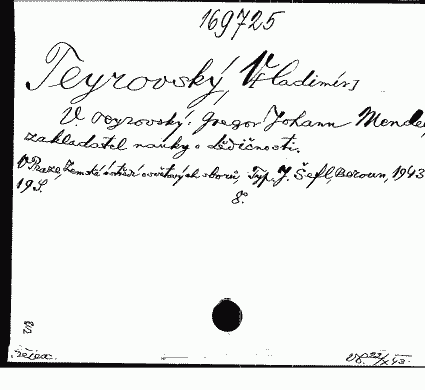 169725
Teyrovský, Vladimír]
V. Teyrovský: Gregor Johann Mendel,
zakladatel nauky o dědičnosti.
V Praze, Zemské ústředí osvětových sborů, Typ. J. Šefl, Beroun, 1943.
19 S. 8°.